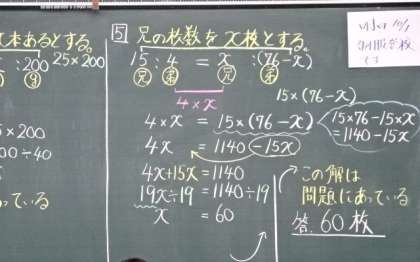 本あるとする。
:200 25×200
00÷40
っている
5 兄の枚数をx枚とする。
15:4=x:(76-x)
兄 弟 兄 弟
4×x
15×(76-x)
4×x=15×(76-x)
15×76-15×x
=1140-15x
4x=1140-15x
4x+15x=1140
19x÷19=1140÷19
x=60
この解は
問題にあっている
答. 60枚